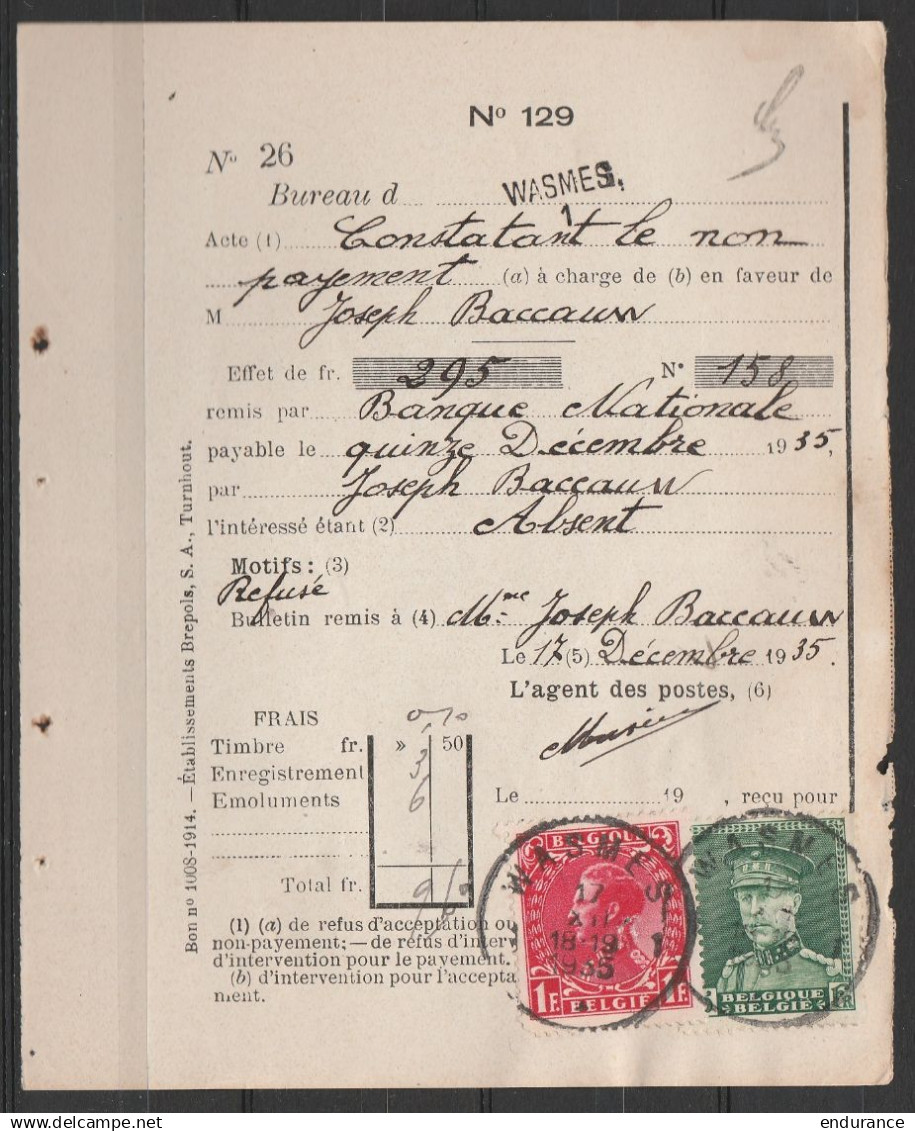 Nº 129
Nº 26
Bureau d WASMES.
1
Acte (1) Constatant le non
payement (a) à charge de (b) en faveur de
M Joseph Baccauw
Effet de fr. 295 Nº 158
remis par Banque Nationale
payable le quinze Décembre 1935,
par Joseph Baccauw
l'intéressé étant (2) Absent
Motifs : (3)
Refusé
Bulletin remis à (4) Mme Joseph Baccauw
Le 17 (5) Décembre 1935.
L'agent des postes, (6)
FRAIS
Timbre fr. » 50
Enregistrement 3
Emoluments 6
Le 19 , reçu pour
Total fr.
(1) (a) de refus d'acceptation ou
non-payement; — de refus d'interv
d'intervention pour le payement.
(b) d'intervention pour l'accepta
ment.
Bon nº 1008-1914. — Établissements Brepols, S. A., Turnhout.
BELGIQUE
1F. BELGIË 1F.
WASMES
17
XII
18-19
1935
1
WASMES
1
BELGIQUE
BELGIË
FR
endurance